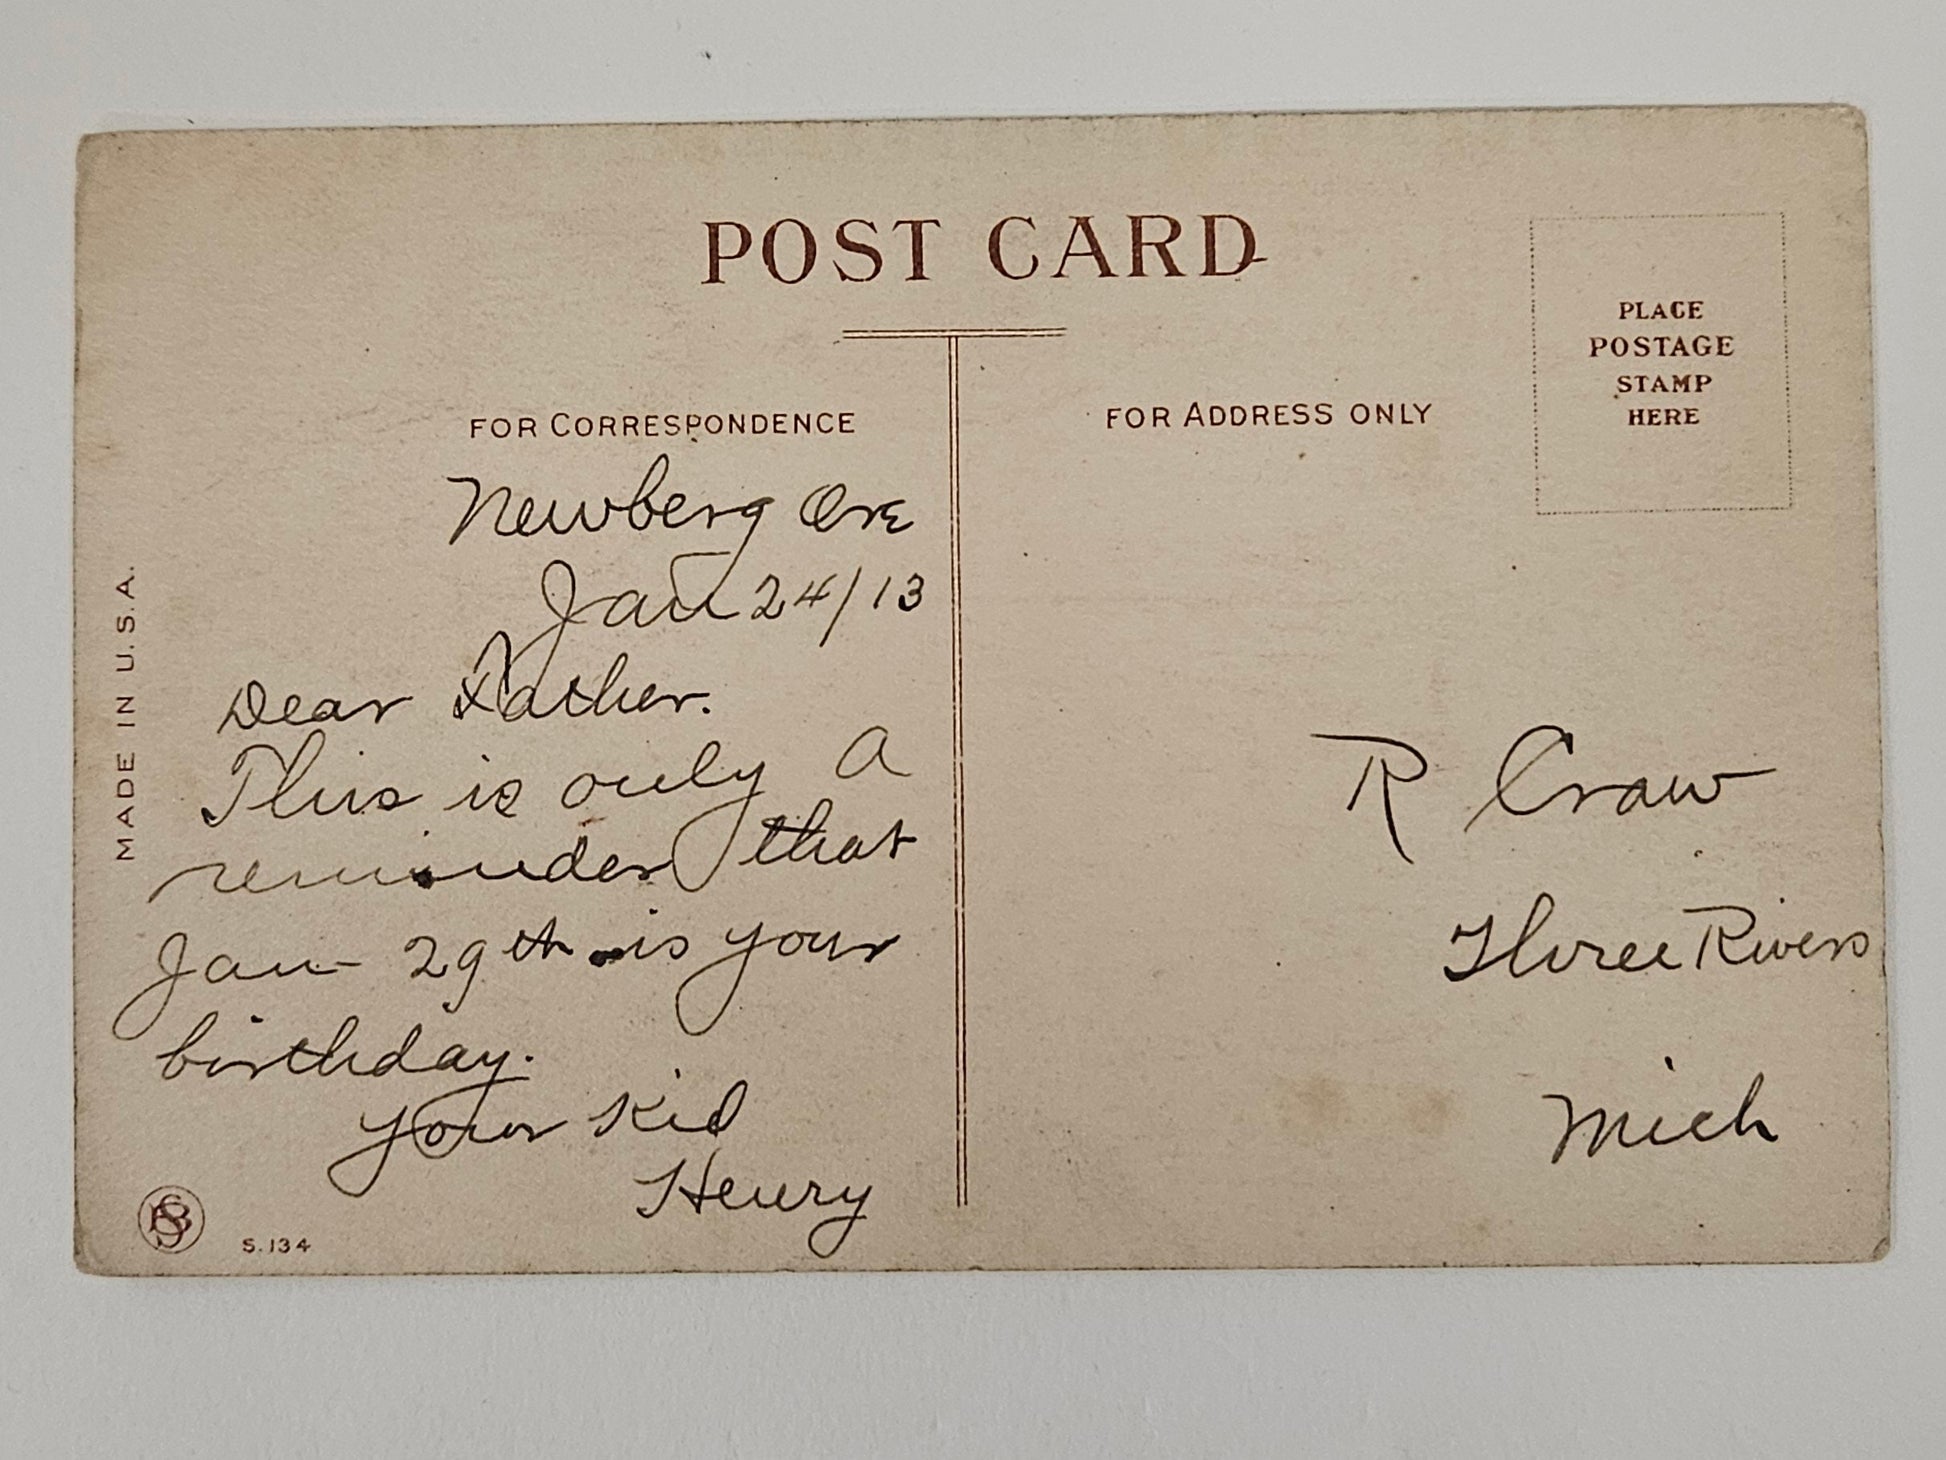 POST CARD
FOR CORRESPONDENCE
FOR ADDRESS ONLY
PLACE
POSTAGE
STAMP
HERE
MADE IN U.S.A.
Newberg Ore
Jan 24/13
Dear Father.
This is only a
reminder that
Jan 29th is your
birthday.
Your Kid
Henry
R Craw
Three Rivers
Mich
S.134